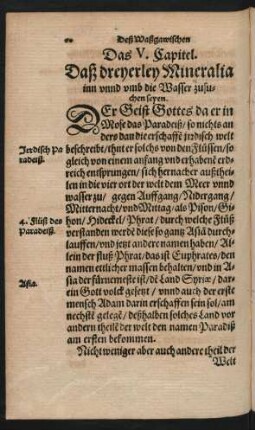 60 Deß Waßgawischen
Das V. Capitel.
Daß dreyerley Mineralia
inn vnnd vmb die Wasser zusu-
chen seyen.
DEr Geist Gottes da er in
Mose das Paradeiß / so nichts an
ders dan die erschaffē jrdisch welt
Irrdisch Pa
radeiß.
beschreibt / thut er solchs von den Flüssen / so
gleich von einem anfang vnd erhabenē erd-
reich entspringen / sich hernacher außthei-
len in die vier ort der welt dem Meer vnnd
wasser zu / gegen Auffgang / Nidergang /
Mitternacht / vnd Mittag / als Pison / Gi-
4. Flüß des
Paradeiß.
hon / Hidekel / Phrat / durch welche Flüß
verstanden werdē diese so gantz Asiā durch-
lauffen / vnd jetzt andere namen haben / Al-
lein der fluß Phrat / das ist Euphrates / den
namen etlicher massen behalten / vnd in A-
Asia.
sia der fürnemeste ist / dē Land Syriæ / dar-
ein Gott volck gesetzt / vnnd auch der erste
mensch Adam darin erschaffen sein sol / am
nechstē gelegē / deßhalben solches Land vor
andern theilē der welt den namen Paradiß
am ersten bekommen.
Nicht weniger aber auch andere theil der
Welt